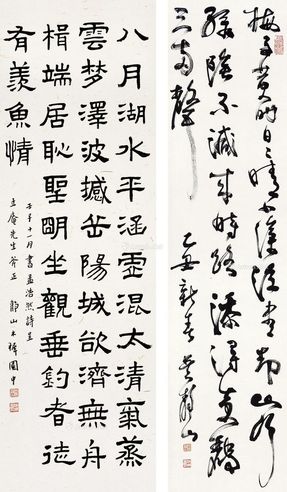 梅子黃時日日晴小溪泛盡却山行
綠陰不減來時路添得黃鸝
三兩聲
乙丑新春
八月湖水平涵虛混太清氣蒸
雲夢澤波撼岳陽城欲濟無舟
楫端居恥聖朙坐觀垂釣者徒
有羨魚情
十一月書孟浩然詩呈
先生斧正